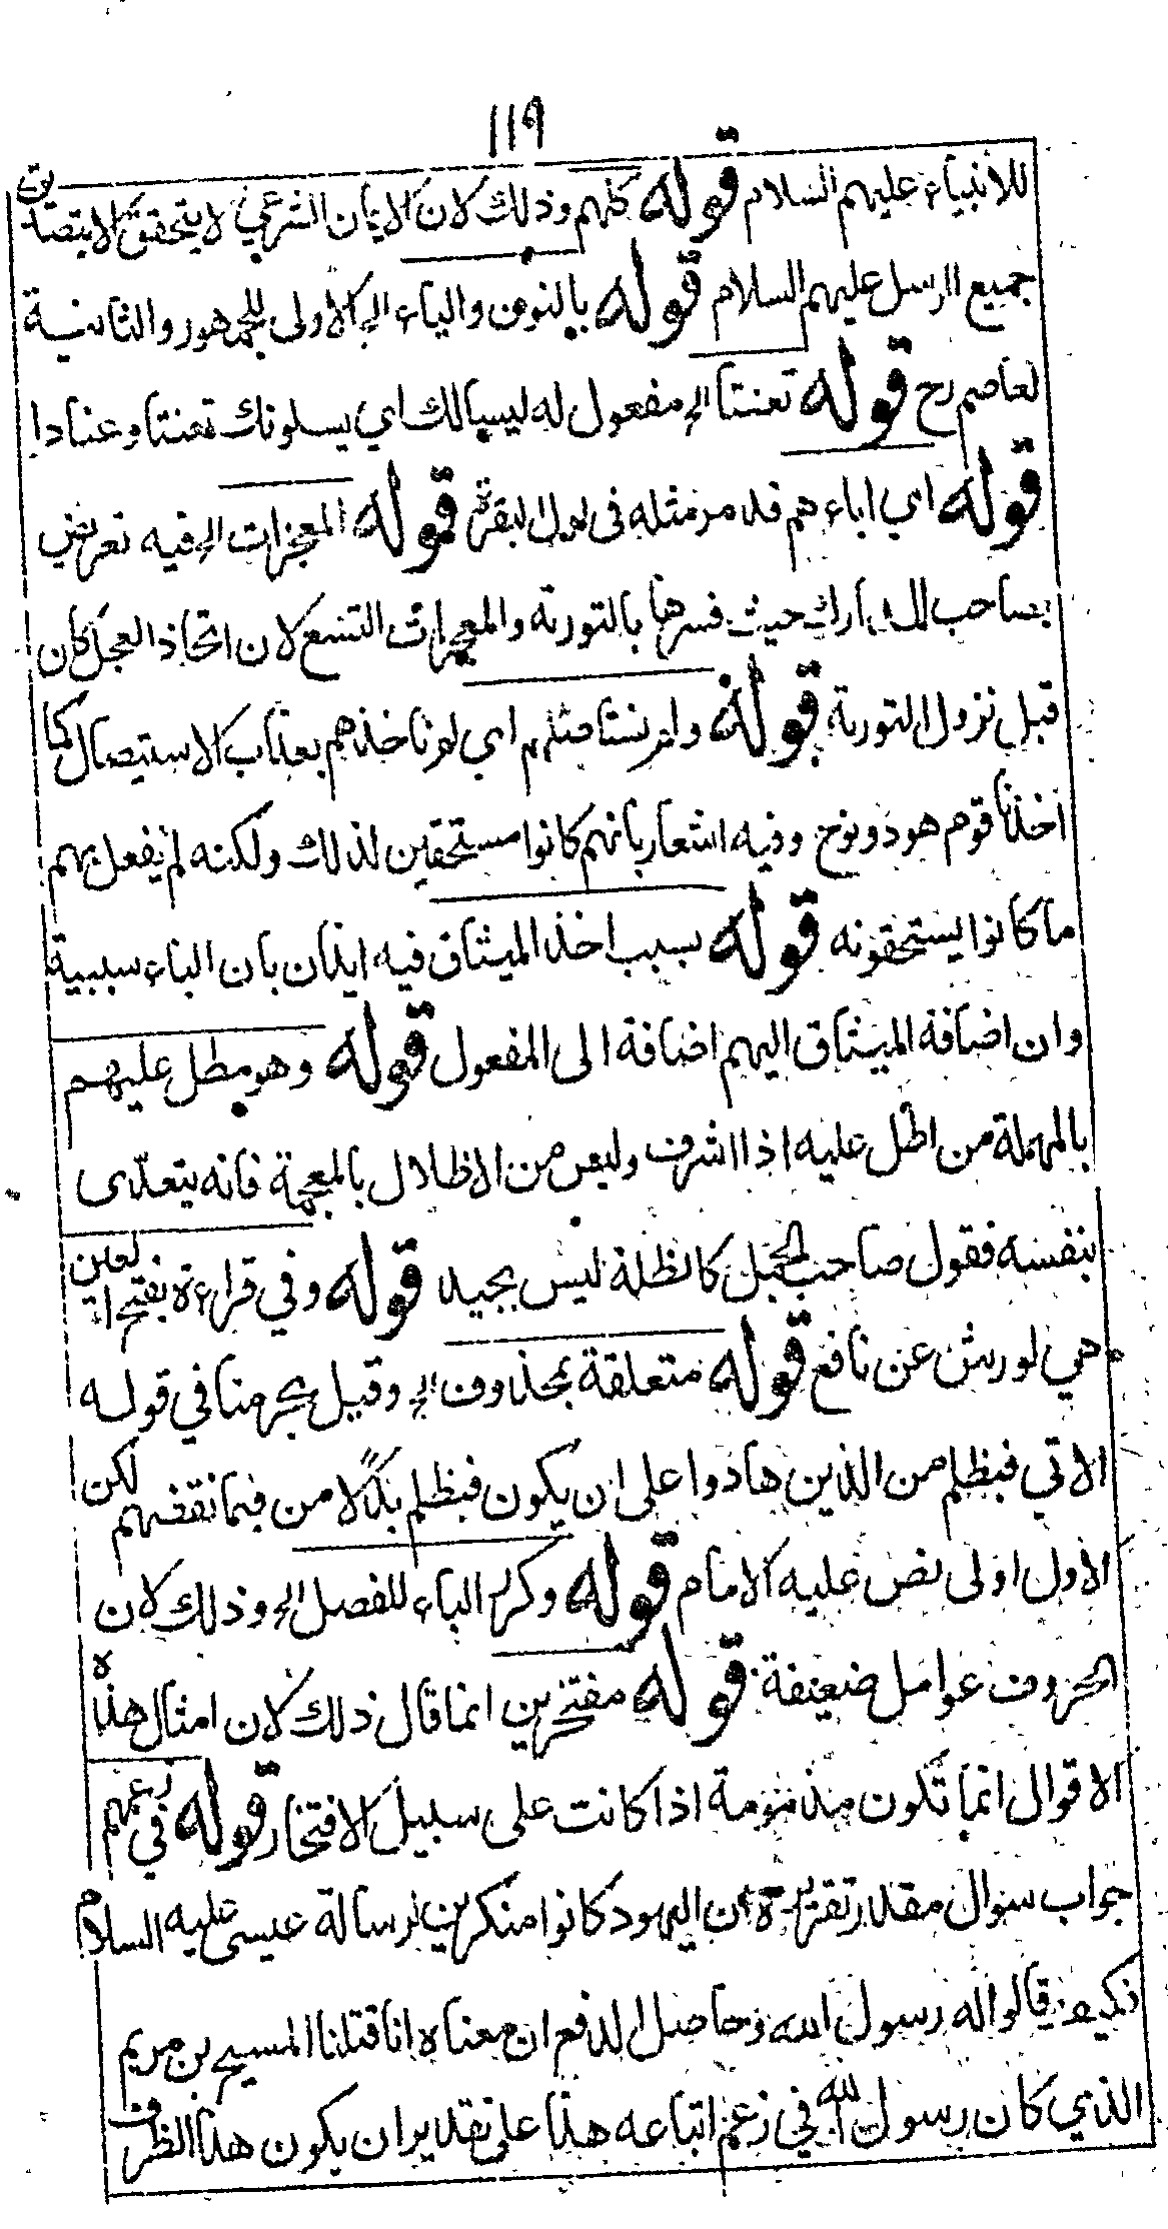 ١١٩
للأنبياء عليهم السلام قوله كلهم وذلك لان الايمان الشرعي لا يتحقق الا بتصديق
جميع الرسل عليهم السلام قوله بالنون والياء الخ الاولى للجمهور والثانية
لعاصم رح قوله تعنتا الخ مفعول له ليسالك اي يسلونك تعنتا وعنادا
قوله اي اباءهم قد مر مثله في اول البقرة قوله المعجزات الخ فيه تعريض
بصاحب المدارك حيث فسرها بالتورىة والمعجزات التسع لان اتخاذ العجل كان
قبل نزول التورىة قوله ولم نستاصلهم اي لم ناخذهم بعذاب الاستيصال كما
اخذنا قوم هود ونوح وفيه اشعار بانهم كانوا مستحقين لذلك ولكنه لم يفعل بهم
ما كانوا يستحقونه قوله بسبب اخذ الميثاق فيه ايذان بان الباء سببية
وان اضافة الميثاق اليهم اضافة الى المفعول قوله وهو مطل عليهم
بالمهملة من اطل عليه اذا اشرف وليس من الاظلال بالمعجمة فانه يتعدى
بنفسه فقول صاحب الجمل كالظلة ليس بجيد قوله وفي قراءة بفتح العين
هي لورش عن نافع قوله متعلقة بمحذوف الخ وقيل بحرمنا في قوله
الاتي فبظلم من الذين هادوا على ان يكون فبظلم بدلا من فبما نقضهم لكن
الأول اولى نص عليه الامام قوله وكرر الباء للفصل الخ وذلك لان
الحروف عوامل ضعيفة قوله مفتخرين انما قال ذلك لان امثال هذه
الاقوال انما تكون مذمومة اذا كانت على سبيل الافتخار قوله في زعمهم
جواب سوال مقدر تقريره ان اليهود كانوا منكرين لرسالة عيسى عليه السلام
فكيف قالوا انه رسول الله وحاصل الدفع ان معناه انا قتلنا المسيح بن مريم
الذي كان رسول الله في زعم اتباعه هذا على تقدير ان يكون هذا الظرف